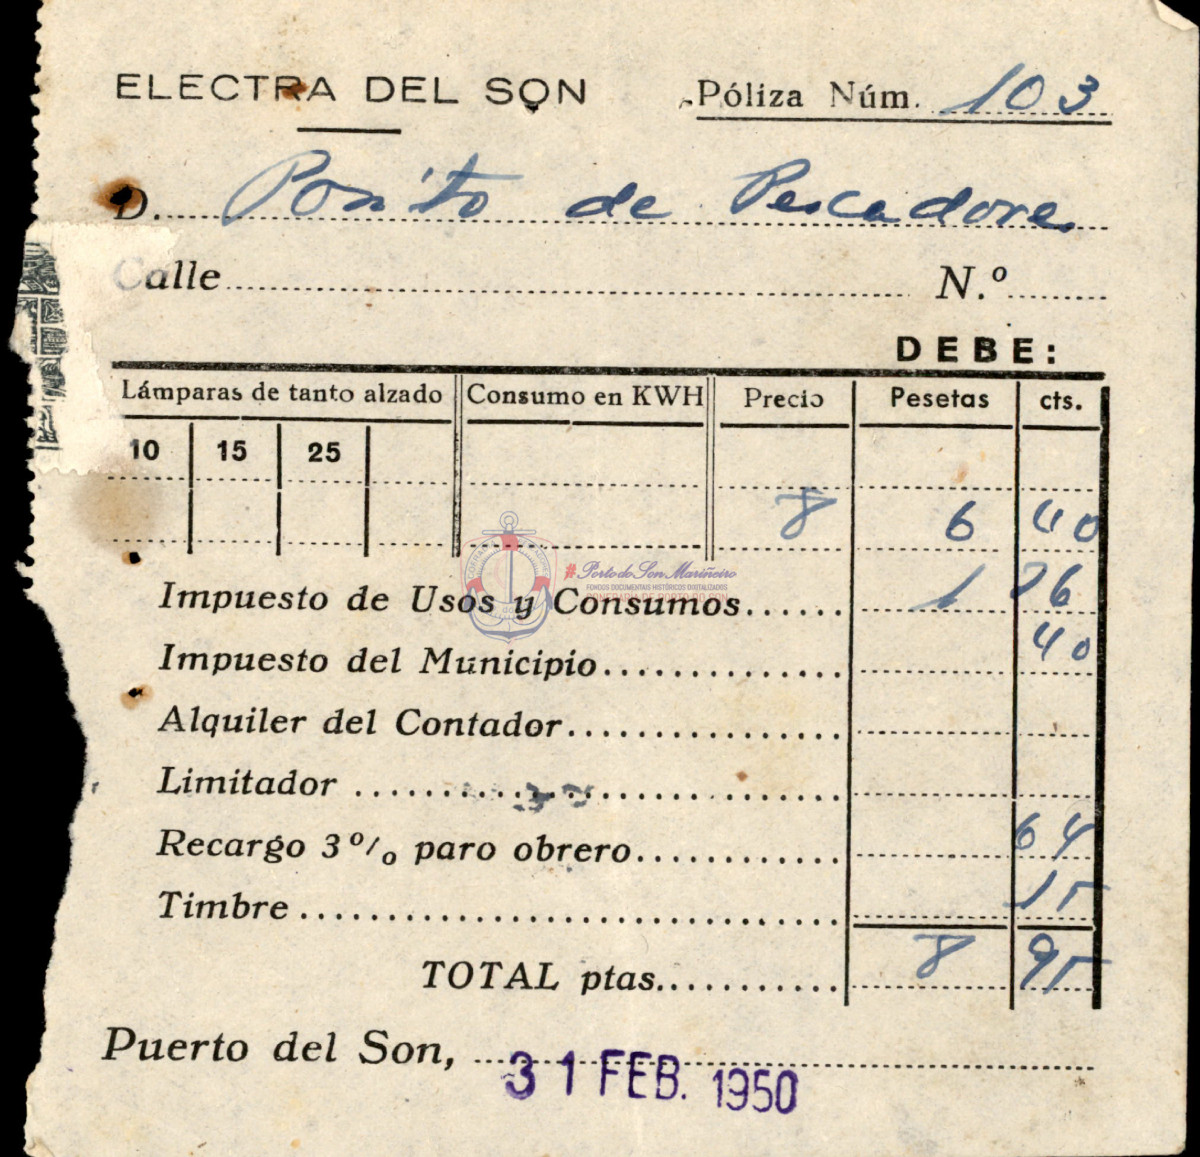 ELECTRA DEL SON
Póliza Núm. 103
D. Posito de Pescadores
Calle N.º
DEBE:
Lámparas de tanto alzado Consumo en KWH Precio Pesetas cts.
10 15 25
8 6 40
Impuesto de Usos y Consumos 1 36
Impuesto del Municipio 40
Alquiler del Contador
Limitador
Recargo 3% paro obrero 64
Timbre 15
TOTAL ptas. 8 95
Puerto del Son, 31 FEB. 1950
#PortodoSonMariñeiro
FONDOS DOCUMENTAIS HISTÓRICOS DIXITALIZADOS